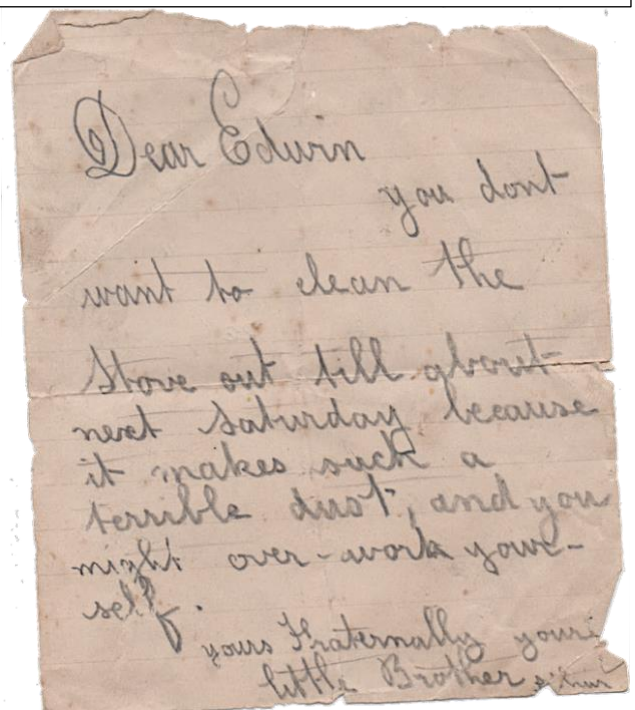 Dear Edwin
you dont
want to clean the
stove out till about
next saturday because
it makes such a
terrible dust, and you
might over-work your-
self.
yours Fraternally your
little Brother